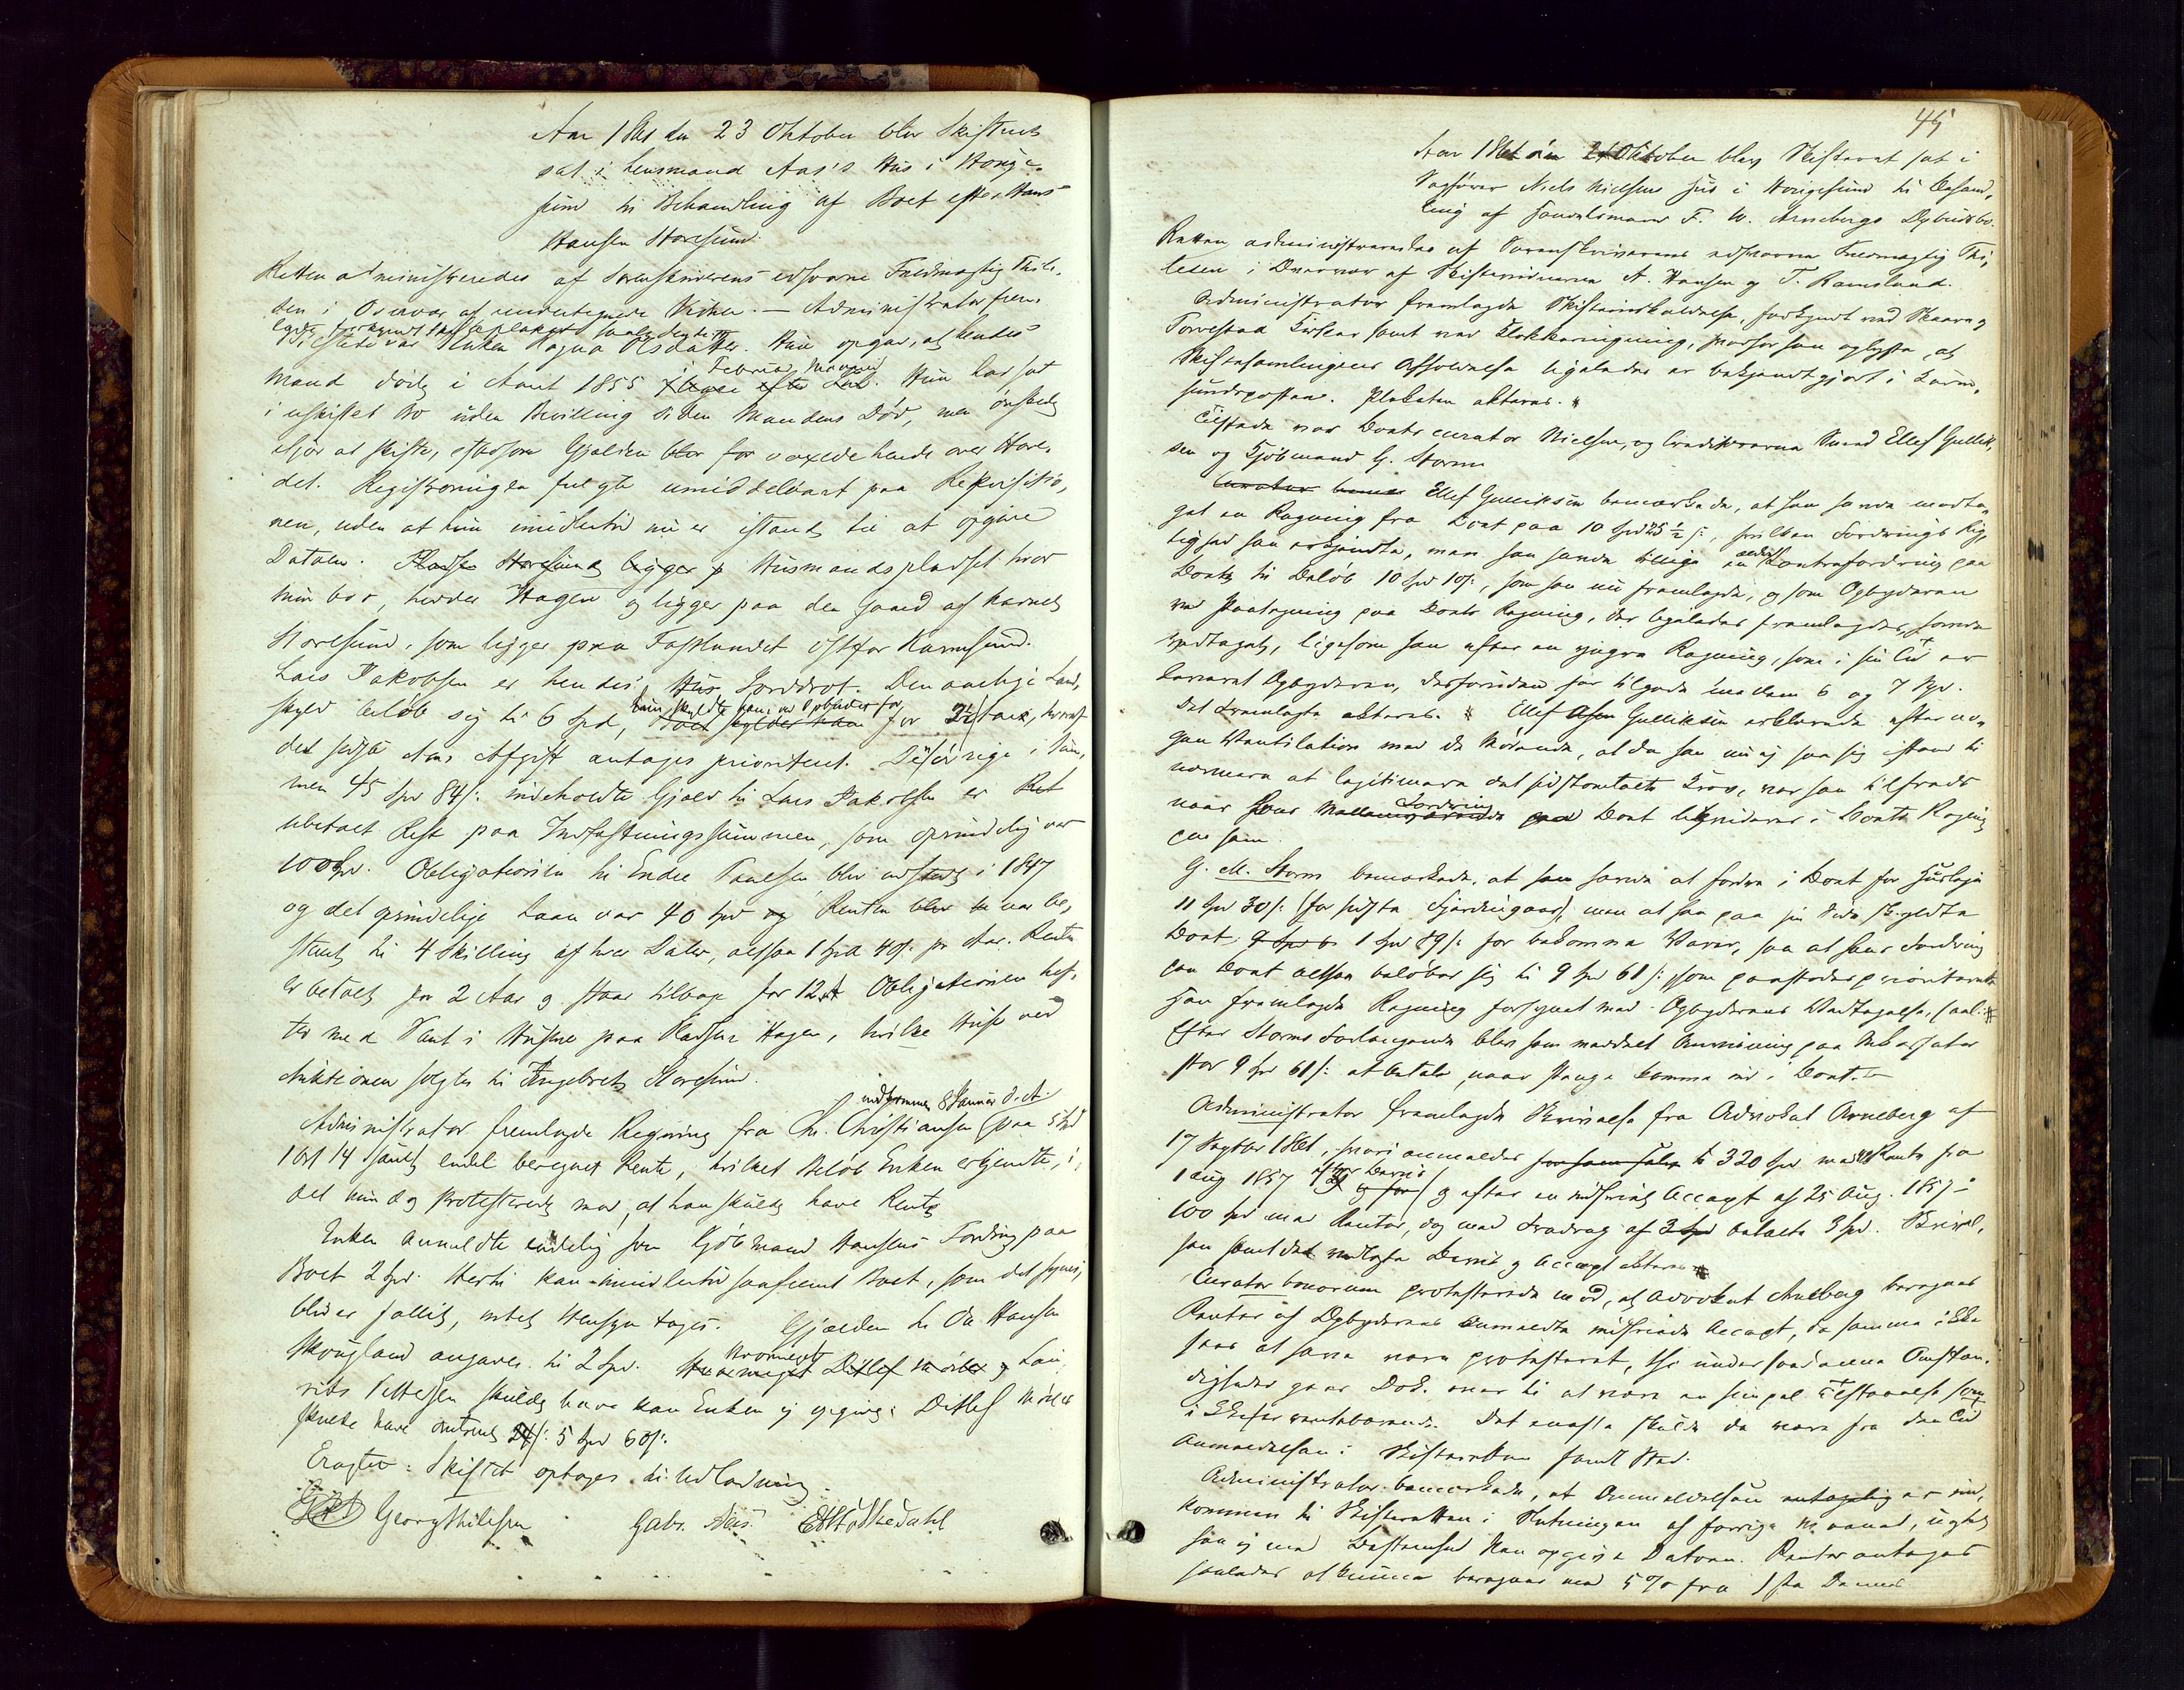 Aar 1861 den 23 Oktober blev Skifteret
sat i Lensmand Aas's Hus i Houge-
sund til Behandling af Boet efter Hans
Hansen Storesund.
Retten administreredes af Sorenskriverens edsvorne Fuldmægtig Thile-
sen i Overvær af undertegnede Vidner. — Administrator frem-
lagde forkyndt
Tilstede var Enken Ragna Olsdatter. Hun opgav, at hendes
i Februar Maaned
Mand døde i Aaret 1855. Hun har sat
i uskiftet Bo uden Bevilling siden Mandens Død, men ønskede
at skifte, eftersom Gjælden blev for voxede hende over Hove-
det. Registreringen fulgte umiddelbart paa Rekvisitio-
nen, uden at hun imidlertid nu er istand til at opgive
Datoen. Pladse Storesund ligger p Husmandspladset hvor
hun bor, hedder Hagen og ligger paa den Gaard af Navnet
Storesund, som ligger paa Fastlandet østfor Karmsund.
Lars Jakobsen er hendes Hus Jorddrot. Den aarlige Land-
skyld beløb sig til 6 Spd, for 2½ Aar, hvoraf
det sidste Aars Afgift antages prioriteret. Den øvrige i Sum-
men 45 Spd 84 s: indeholdte Gjæld til Lars Jakobsen er Ret
ubetalt Rest paa Indfæstningssummen, som oprindelig var
100 Spd. Obligationen til Endre Paulsen blev udstedt i 1847
og det oprindelige Laan var 40 Spd og Renten blev var be-
stemt til 4 Skilling af hver Daler, altsaa 1 Spd 40 s. pr Aar. Renten
er betalt for 2 Aar og staar tilbage for 12. Obligationen hef-
ter med Pant i Husene paa Pladsen Hagen, hvilke Huse ved
Auktionen solgtes til Ingebret Storesund.
indkommen 8 Januar d. A.
Administrator fremlagde Regning fra Chr. Christiansen paa 5 Spd
1 Ort 14 s samt endel beregnet Rente, hvilket Beløb Enken erkjendte, i-
det hun dog protesterede mod, at han skulde have Rente
Enken anmeldte endelig som Kjøbmand Hansens Fordring paa
Boet 2 Spd. Hertil kan imidlertid saafremt Boet, som det synes,
bliver fallit, intet Hensyn tages. Gjælden til Ole Hansen
Skougland angaves til 2 Spd. Hvormeget Ditlef og Lau-
rits Pettersen skulde have kan Enken ej opgive. Ditlef
skulde have omtrent 5 Spd 60 s.
Eragtet: Skiftet optages til Udlodning.
Georg Thilesen Gabr. Aas.

45
Aar 1861 den 24 Oktober blev Skifteret sat i
Sagfører Niels Nielsens Hus i Hougesund til Behand-
ling af Handelsmand F. W. Arnebergs Opbudsbo.
Retten administreredes af Sorenskriverens edsvorne Fuldmægtig Thi-
lesen i Overvær af Skiftevidnerne A. Hansen og T. Ramslund.
Administrator fremlagde Skifteindkaldelse, forkyndt ved Skaare og
Torvestad Kirker samt ved Klokkeringning, hvorhos han oplyste, at
Skiftesamlingens Afholdelse ligeledes er bekjendtgjort i Karm-
sundsposten. Plakaten akteres.
Tilstede var Boets curator Nielsen, og Creditorerne Smed Ellef Gullik-
sen og Kjøbmand G. Storm
Curator bemæ Ellef Gulliksen bemærkede, at han havde modta-
get en Regning fra Boet paa 10 Spd 25½ s:, hvilken Fordrings Rig-
tighed han erkjendte, men han havde tillige en Kontrafordring paa
Boet til Beløb 10 Spd 10 s:, som han nu fremlagde, og som Opbyderen
ved Paategning paa Boets Regning, der ligeledes fremlagdes, havde
vedtaget, ligesom han efter en yngre Regning, som i sin Tid er
leveret Opbyderen, desforuden har tilgode imellem 6 og 7 Spd.
Det Fremlagte akteres. Ellef Gulliksen erklærede efter no-
gen Ventilation med de Mødende, at da han nu ej saa sig istand til
nærmere at legitimere det sidstomtalte Krav, var han tilfreds
naar hans Fordring paa Boet likvideres i Boets Regning
paa ham.
G. M. Storm bemærkede, at han havde at fordre i Boet for Husleje
11 Spd 30 s: (for sidste Fjerdingaar), men at han paa sin Side skyldte
Boet 1 Spd 89 s: for bekomne Varer, saa at hans Fordring
paa Boet altsaa beløber sig til 9 Spd 61 s:, som paastodes prioriteret.
Han fremlagde Regning forsynet med Opbyderens Vedtagelse,
Efter Storms Forlangende blev ham meddelt Anvisning paa Inkassator
stor 9 Spd 61 s: at betale, naar Penge komme ind i Boet.
Administrator fremlagde Skrivelse fra Advokat Arneberg af
17 Septbr 1861, hvori anmeldes til 320 Spd med Renter fra
1 Aug 1857 efter Bevis og efter en indfriet Accept af 25 Aug. 1857
100 Spd med Renter, dog med Fradrag af betalte 3 Spd. Skrivel-
sen samt det vedlagte Bevis og Accept akteres
Curator bonorum protesterede mod, at Advokat Arneberg beregner
Renter af Opbyderens anmeldte indfriede Accept, da samme ikke
sees at have været protesteret, thi under saadanne Omstæn-
digheder gaar Dok. over til at være en simpel Tilstaaelse som
i ikke er rentebærende. Det eneste skulde da være fra den Tid
Anmeldelsen i Skifteretten fandt Sted.
Administrator bemærkede, at Anmeldelsen antagelig er ind-
kommen til Skifteretten i Slutningen af forrige Maaned, uagtet
han ej med Bestemthed kan opgive Datoen. Renter antages
saaledes at kunne beregnes med 5 % fra